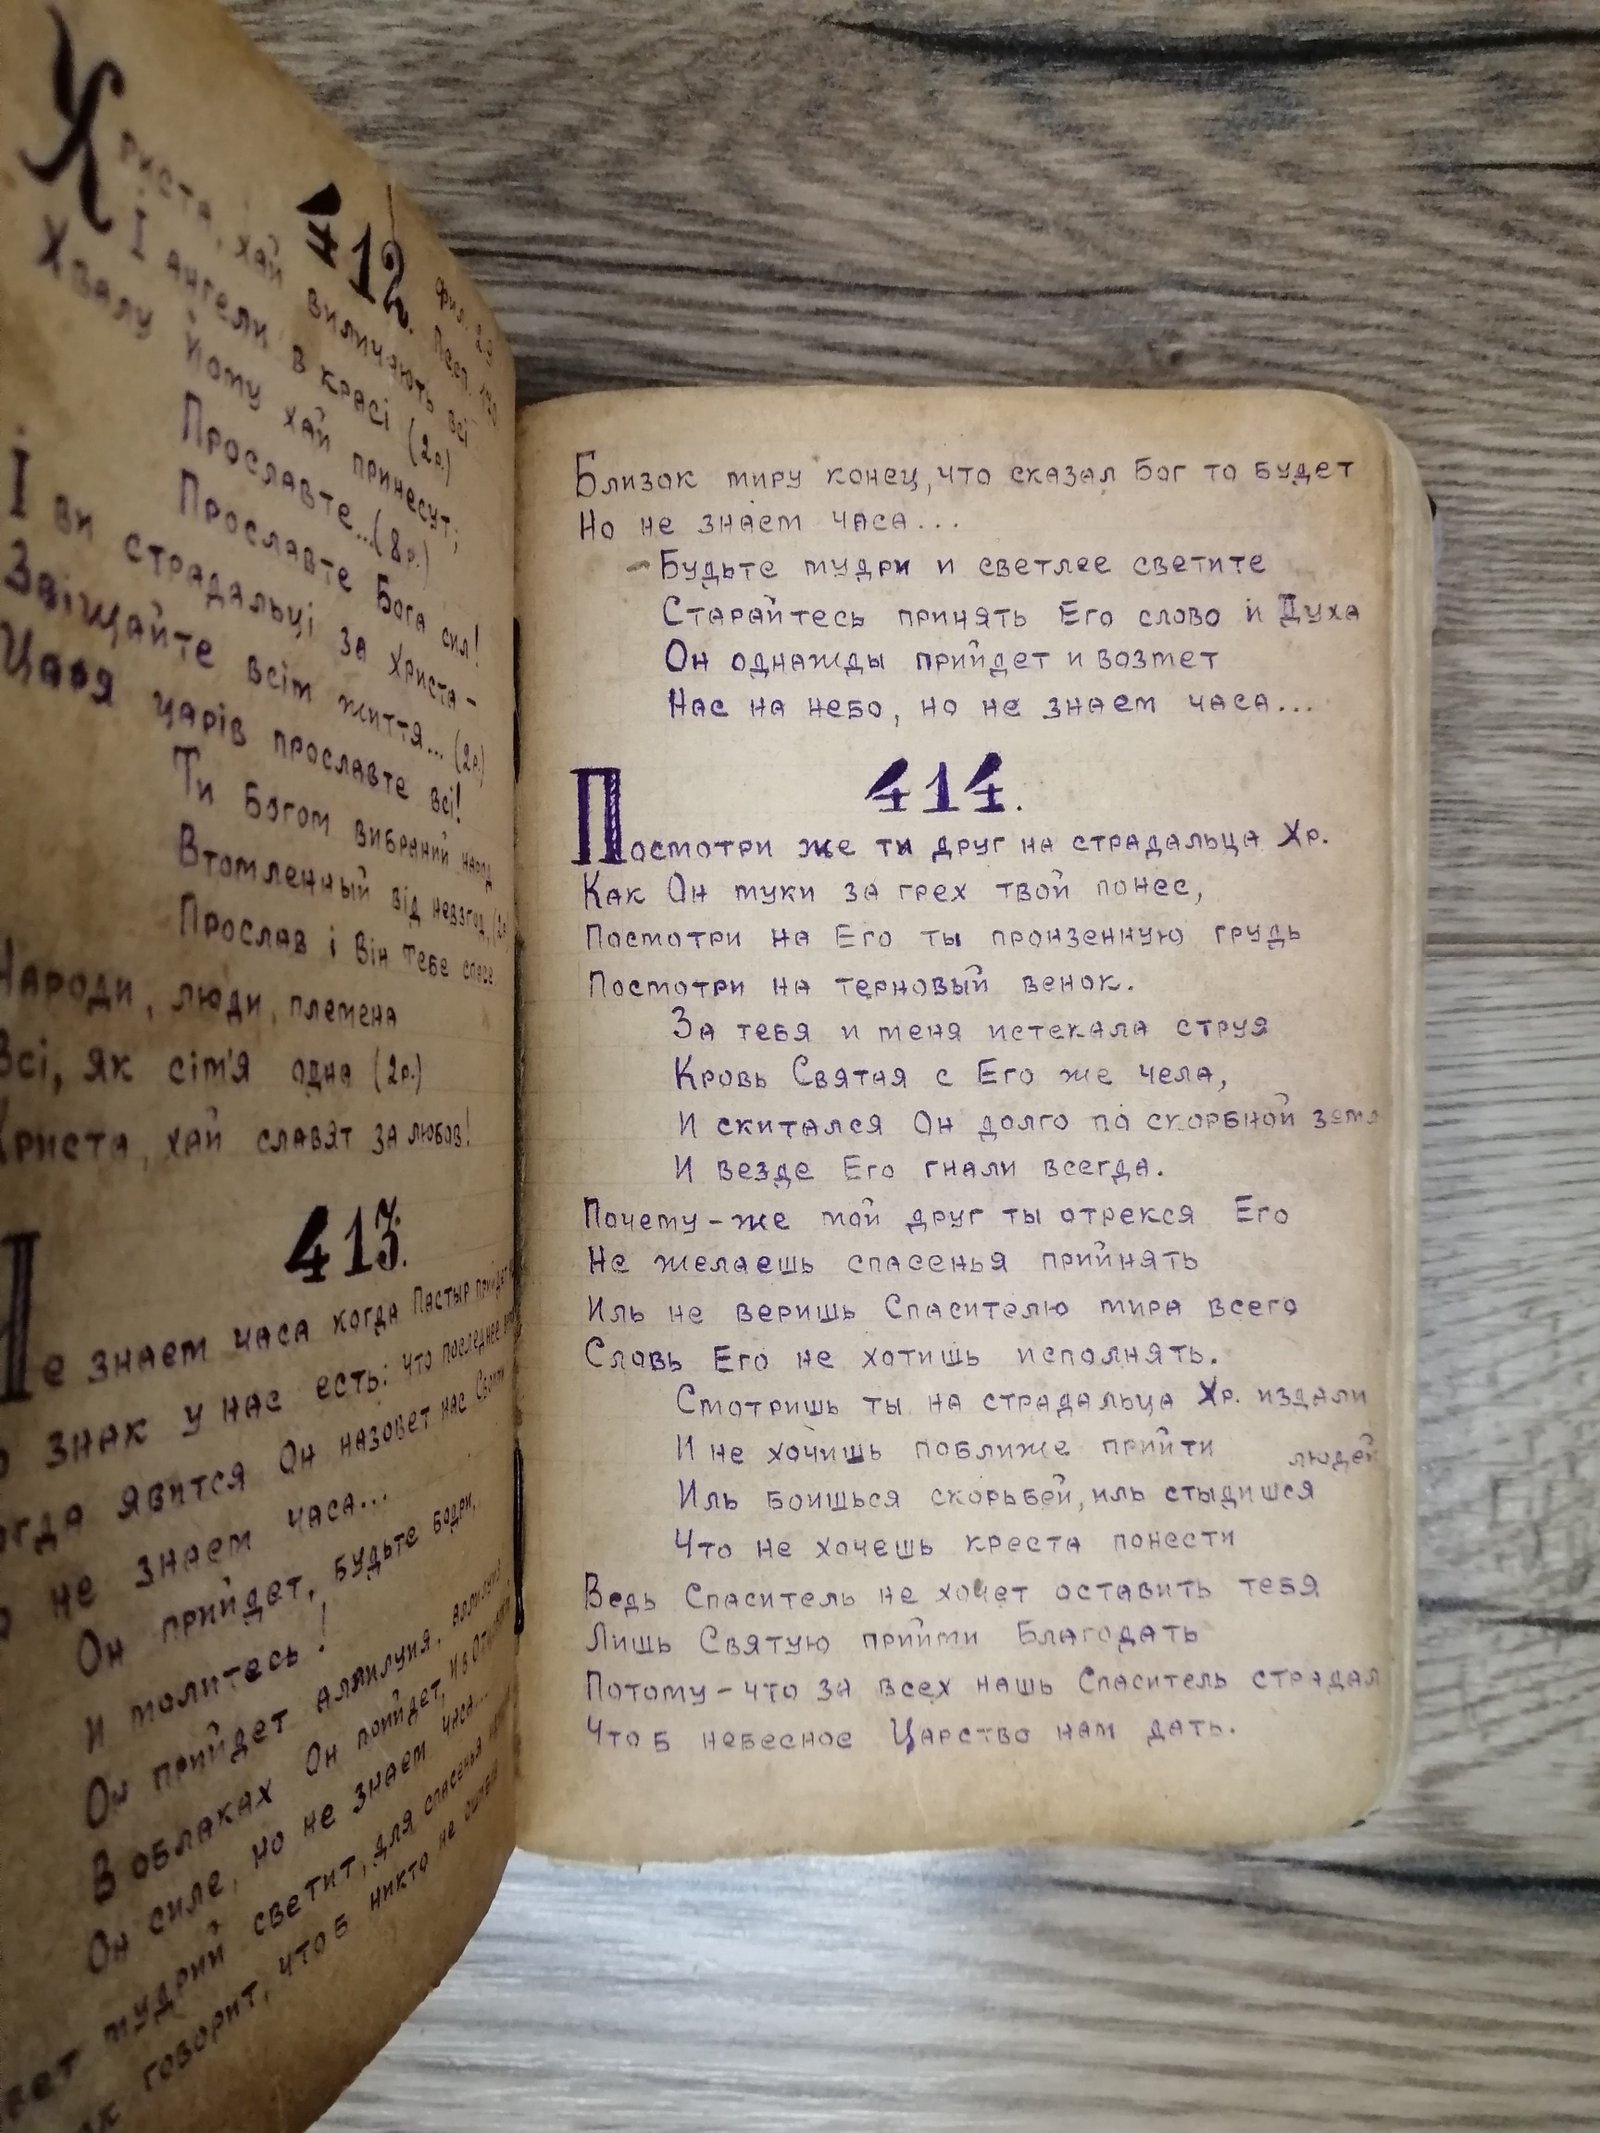 412.
Фил. 2,9
Христа, хай величають всі
І ангели в красі (2р.)
Хвалу Йому хай принесут;
Прославте...(8р.)
Прославте Бога сил!
І ви страдальці за Христа-
Звіщайте всім життя... (2р.)
Царя царів прославте всі!
Ти Богом вибраний народ
Втомленный від невзгод,
Прослав і Він тебе спасе
Народи, люди, племена
Всі, як сім'я одна (2р.)
Христа, хай славят за любов!
413.
Не знаем часа когда Пастыр прийдет
знак у нас есть: что последнее
явится Он назовет нас
не знаем часа...
Он прийдет, будьте бодри,
И молитесь!
Он прийдет аллилуия,
В облаках Он прийдет,
Он силе, но не знаем часа...
мудрий светит, для спасенья
говорит, чтоб никто не
Близок миру конец, что сказал Бог то будет
Но не знаем часа...
Будьте мудри и светлее светите
Старайтесь принять Его слово и Духа
Он однажды прийдет и возмет
Нас на небо, но не знаем часа...
414.
Посмотри же ти друг на страдальца Хр.
Как Он муки за грех твой понес,
Посмотри на Его ты пронзенную грудь
Посмотри на терновый венок.
За тебя и меня истекала струя
Кровь Святая с Его же чела,
И скитался Он долго по скорбной
И везде Его гнали всегда.
Почему-же мой друг ты отрекся Его
Не желаешь спасенья прийнять
Иль не веришь Спасителю мира всего
Словь Его не хотишь исполнять.
Смотришь ты на страдальца Хр. издали
И не хочишь поближе прийти
людей
Иль боишься скорьбей, иль стыдишся
Что не хочешь креста понести
Ведь Спаситель не хочет оставить тебя
Лишь Святую прийми Благодать
Потому-что за всех нашь Спаситель страдал
Чтоб небесное Царство нам дать.